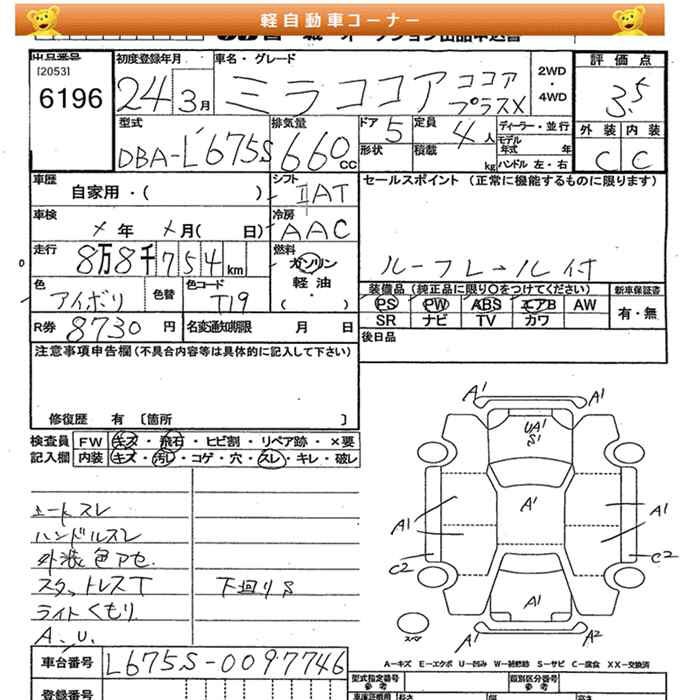 軽自動車コーナー
出品番号
[2053]
6196
初度登録年月
24年 3月
車名・グレード
ミラココア ココア
プラスX
2WD
・
4WD
評価点
3.5
外装 内装
C C
型式
DBA-L675S
排気量
660 CC
ドア 5
形状
定員 4 人
積載 kg
ディーラー・並行
モデル年式 年
ハンドル 左・右
車歴
自家用・( )
シフト
IAT
セールスポイント (正常に機能するものに限ります)
ルーフレール付
車検
× 年 × 月 ( 日)
冷房
AAC
走行
8万8千754km
燃料
ガソリン
軽油
・( )
色
アイボリ
色替
色コード
T19
装備品(純正品に限り〇をつけてください)
PS PW ABS エアB AW
SR ナビ TV カワ
新車保証書
有・無
R券 8730 円
名変通知期限 月 日
後日品
注意事項申告欄(不具合内容等は具体的に記入して下さい)
修復歴 有 [箇所 ]
検査員
記入欄
FW キズ・飛石・ヒビ割・リペア跡・×要
内装 キズ・汚レ・コゲ・穴・スレ・キレ・破レ
シートスレ
ハンドルスレ
外装色アセ
スタットレスT
下廻りS
ライトくもり
A.U.
A1 A1
UA1
S1
A1
A1 A1
C2 C2
A1
スペア
A1 A2
A-キズ E-エクボ U-凹み W-補修跡 S-サビ C-腐食 XX-交換済
車台番号 L675S-0097746
型式指定番号
参考
類別区分番号
参考
登録番号
車庫証明用
参考
長さ
幅
高さ